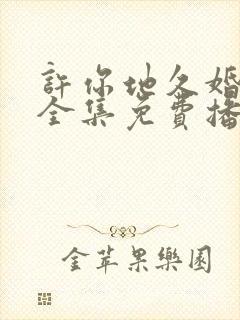 許你地久婚
全集免費播
金苹果樂園